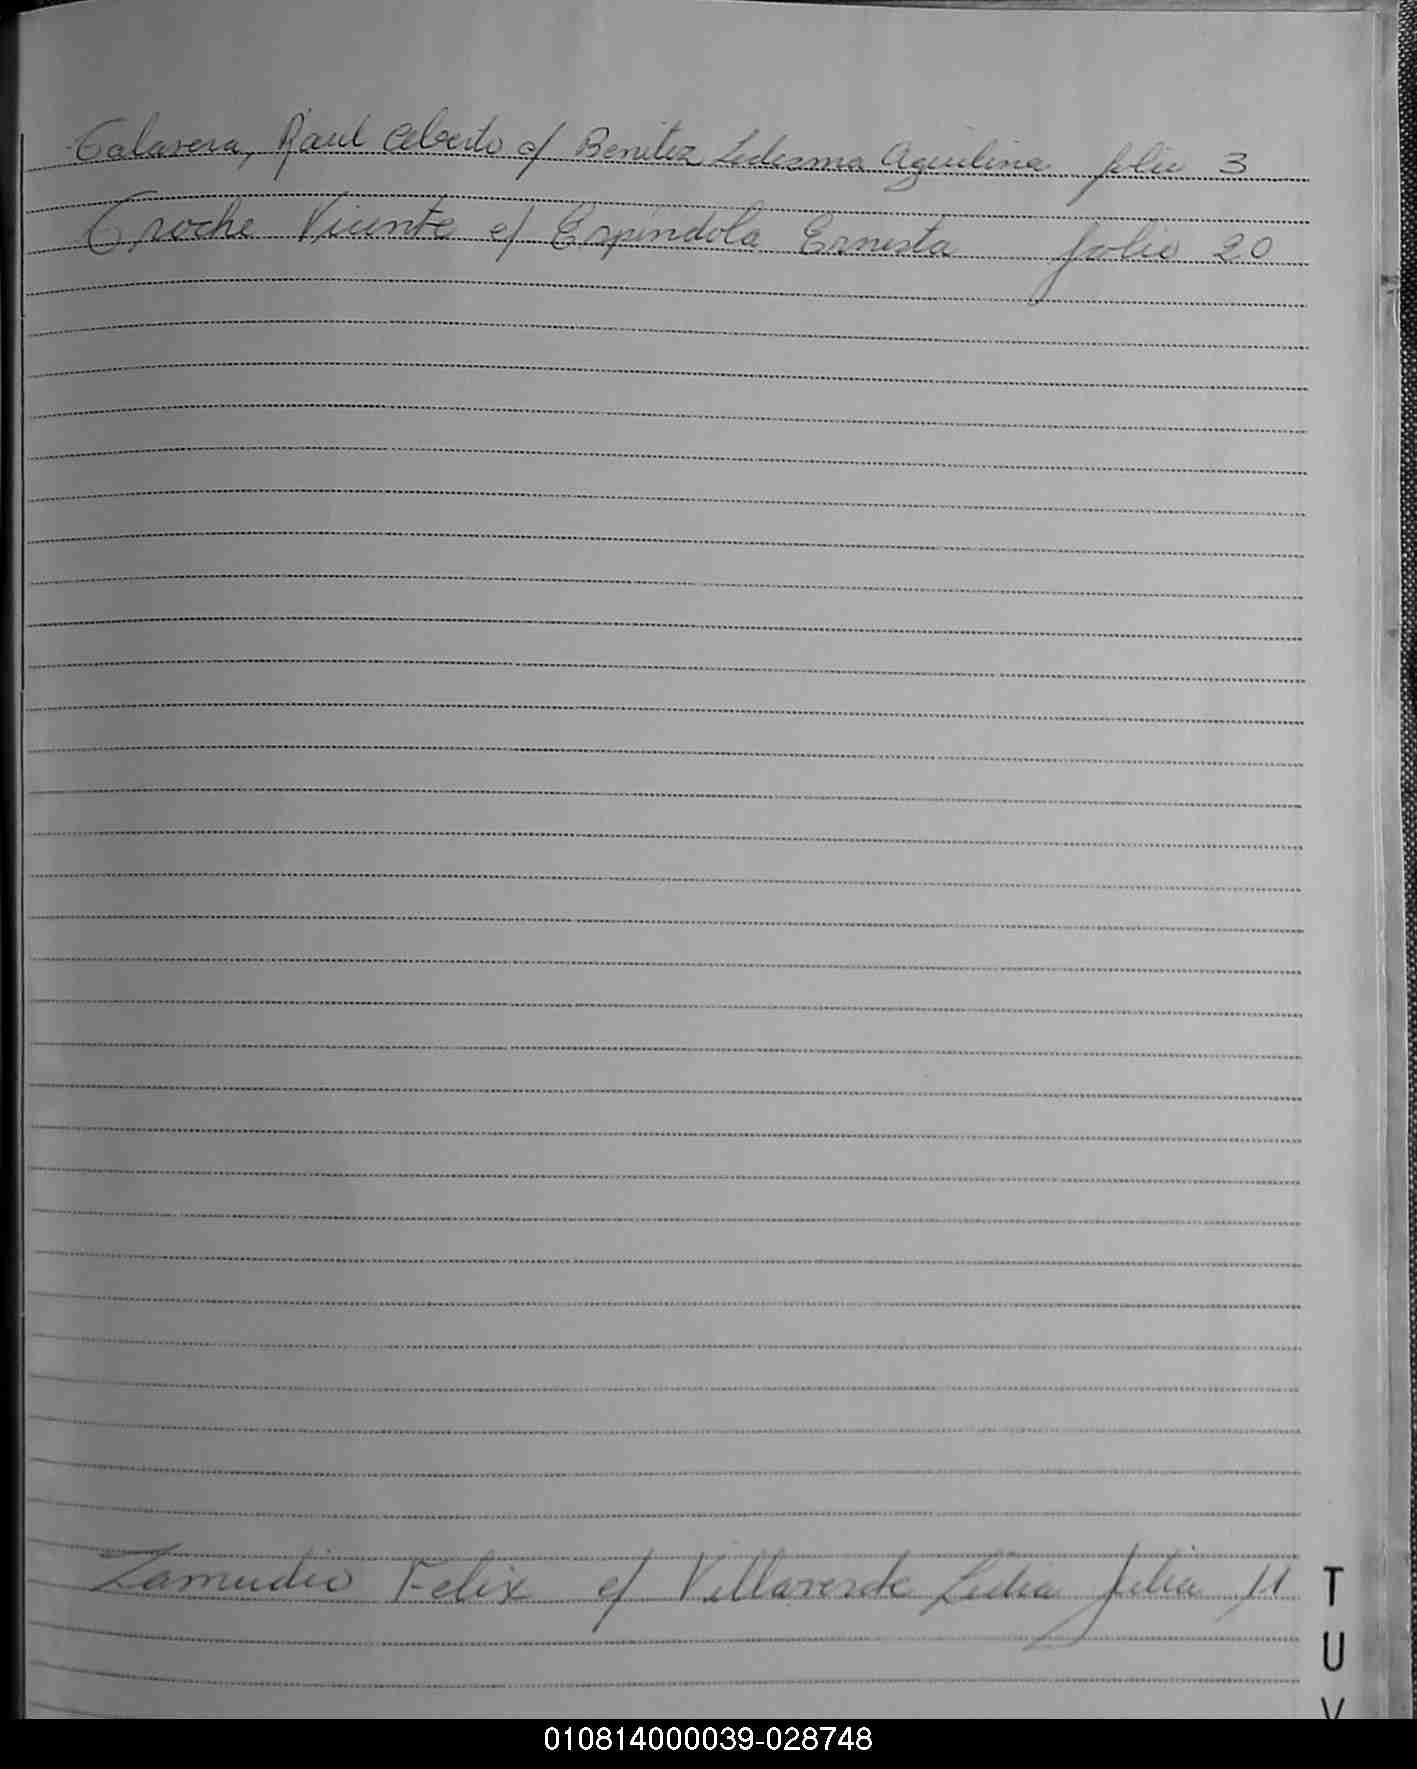 Talavera, Raul Alberto c/ Benitez Ledezma Aquilina folio 3
Troche Vicente c/ Espindola Ernesta folio 20
Zamudio Felix c/ Villaverde Lidia Julia 11
T
U
V
010814000039-028748